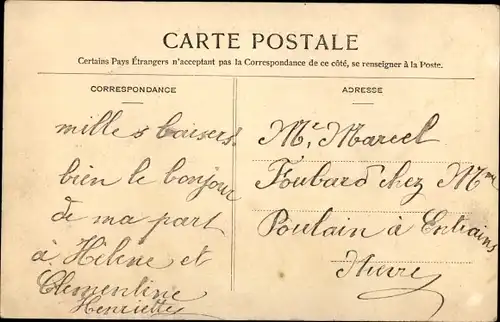 CARTE POSTALE
Certains Pays Étrangers n'acceptant pas la Correspondance de ce côté, se renseigner à la Poste.
CORRESPONDANCE
milles baisers.
bien le bonjour
de ma part
à Hélène et
Clementine
Henriette
ADRESSE
Mr, Marcel
Foubard chez Mme
Poulain à Entrains
Nièvre